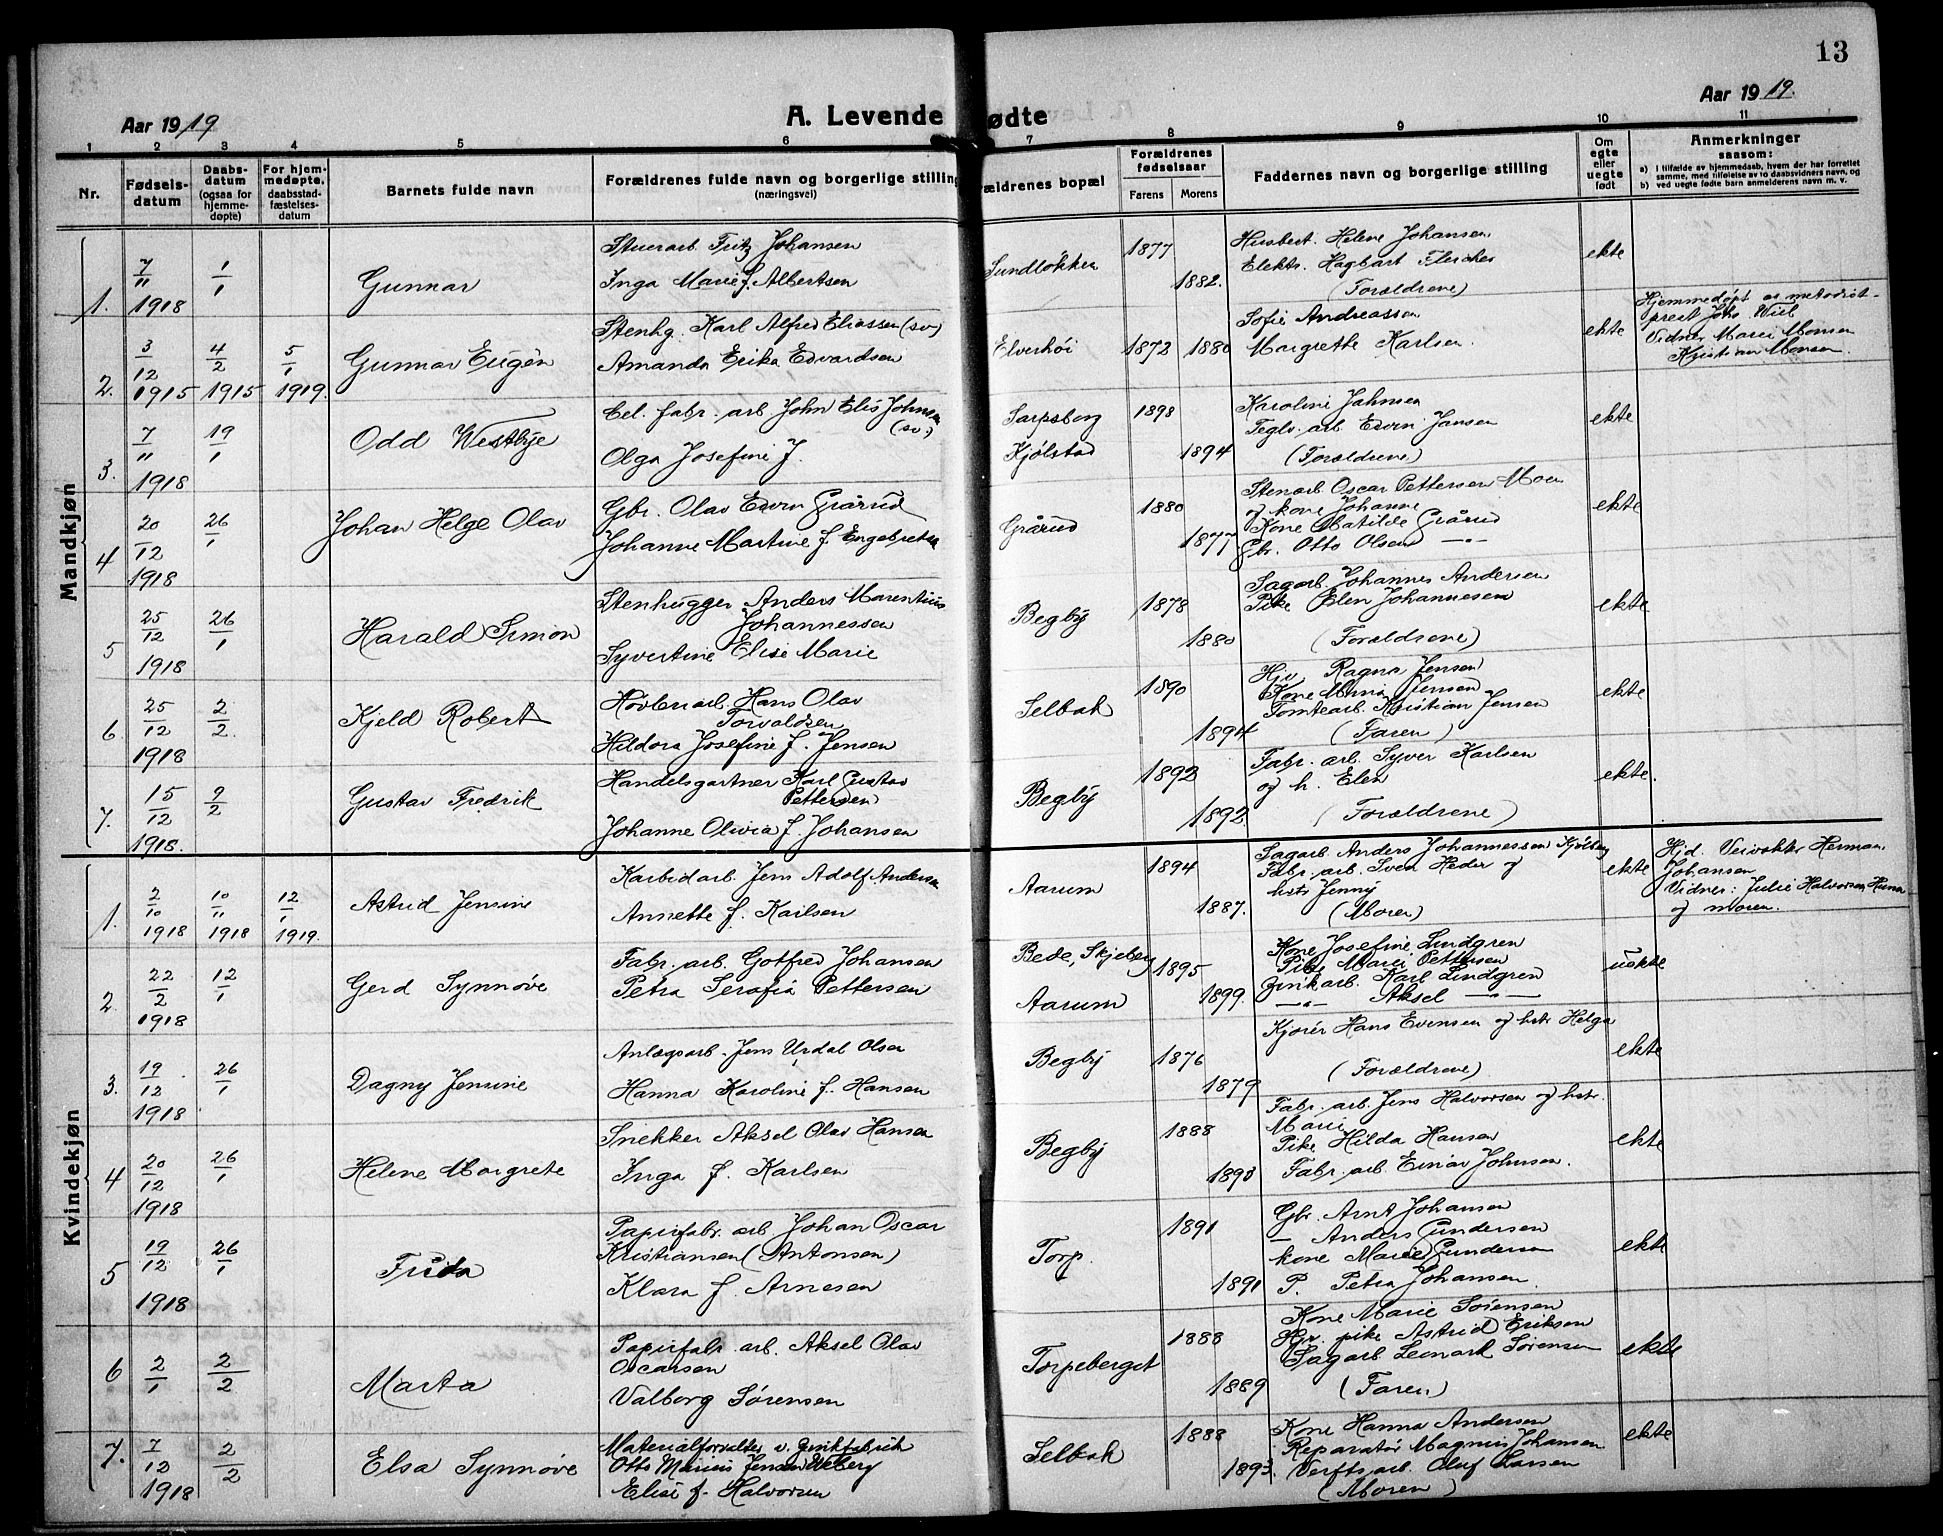 13
Aar 1919
A. Levende
ødte
Aar 1919.
1 2 3 4 5 6 7 8 9 10 11
Nr.
Fødsels-
datum
Daabs-
datum
(ogsaa for
hjemme-
døpte)
For hjem-
medøpte,
daabsstad-
fæstelses-
datum
Barnets fulde navn
Forældrenes fulde navn og borgerlige stilling
(næringsvei)
ældrenes bopæl
Forældrenes
fødselsaar
Farens Morens
Faddernes navn og borgerlige stilling
Om
egte
eller
uegte
født
Anmerkninger
saasom:
a) I tilfælde av hjemmedaab, hvem der har forrettet
samme, med tilføielse av to daabsvidners navn, og
b) ved uegte fødte barn anmelderens navn m. v.
Mandkjøn
1. 7/11 1918 1/1
Gunnar
Stuerarb. Fritz Johansen
Inga Marie f. Albertsen
Sundløkken
1877 1882.
Husbert. Helene Johansen.
Elektr. Hagbart
(Forældrene)
ekte
2. 3/12 1915 4/2 1915 5/1 1919.
Gunnar Eugèn
Stenhg. Karl Alfred Eliassen (sv)
Amanda Erika Edvardsen
Elverhöi
1872 1880
Sofie Andreassen
Margrethe Karlsen.
ekte
Hjemmedøpt av metodist-
prest Johs Wiel
Vidner Marie Monsen
Kristian Monsen.
3. 7/11 1918 19/1
Odd Westbye
Cel. fabr. arb. John Elis Johnsen
(sv)
Olga Josefine J.
Sarpsborg
Kjølstad
1898 1894
Karoline Jahnsen
Teglv. arb. Edvin Jansen
(Forældrene)
ekte
4 20/12 1918 26/1
Johan Helge Olav
Gbr. Olav Edvin Grårud
Johanne Martine f. Engebretsen
Grårud
1880 1877
Stenarb Oscar Pettersen Moen
og kone Johanne
Kone Matilde Grårud
Gbr. Otto Olsen —"—
ekte
5 25/12 1918 26/1
Harald Simon
Stenhugger Anders Marentius
Johannessen
Syvertine Elise Marie
Begby
1878 1880
Sagarb. Johannes Andersen
Pike Elen Johannesen
(Forældrene)
ekte
6. 25/12 1918 2/2.
Kjeld Robert
Høvleriarb. Hans Olav
Torvaldsen
Hildora Josefine f. Jensen
Selbak
1890 1894
Hjv. Ragna Jensen
Kone Mina Jensen
Tomtearb. Kristian Jensen
(Faren)
ekte
7. 15/12 1918. 9/2
Gustav Fredrik
Handelsgartner Karl Gustav
Pettersen
Johanne Olivia f. Johansen
Begby
1892 1892.
Fabr. arb. Syver Karlsen
og h. Elen
(Forældrene)
ekte.
Kvindekjøn
1. 2/10 1918 10/11 1918 12/1 1919.
Astrid Jensine
Karbidarb. Jens Adolf Andersen
Annette f. Karlsen
Aarum
1894 1887.
Sagarb. Anders Johannessen Kjølberg
Fabr. arb. Sven Heder og
hstr Jenny
(Moren)
ekte
Hjd. Herman
Johansen
Vidner: Julie Halvorsen
og moren.
2. 22/2 1918 12/1
Gerd Synnöve
Fabr. arb. Gotfred Johansen
Petra Serafia Pettersen
Bede, Skjeberg
Aarum
1895 1899.
Kone Josefine Lindgren
Pike Marie Pettersen
Zinkarb. Karl Lindgren
—"— Aksel —"—
uekte
3. 19/12 1918 26/1
Dagny Jensine
Anlægsarb. Jens Urdal Olsen
Hanna Karoline f. Hansen
Begby
1876 1879
Kjører Hans Evensen og hstr Helga
(Forældrene)
ekte
4 20/12 1918 26/1
Helene Margrete
Snekker Aksel Olav Hansen
Inga f. Karlsen
Begby
1888 1893
Fabr. arb. Jens Halvorsen og hstr.
Marie
Pike Hilda Hansen
Fabr. arb Einar Johnsen.
ekte
5 19/12 1918 26/1
Frida
Papirfabr. arb Johan Oscar
Kristiansen (Antonsen)
Klara f. Arnesen
Torp.
1891 1891
Gbr. Arnt Johansen
— Anders Gundersen
kone Marie Gundersen
P. Petra Johansen.
ekte
6 2/1 2/2
Marta
Papirfabr. arb. Aksel Olav
Oscarsen
Valborg Sørensen
Torpeberget
1888 1889
Kone Marie Sørensen
Hgr. pike Astrid Eriksen
Sagarb Leonard Sørensen
(Faren)
ekte
7. 7/12 1918 2/2
Elsa Synnöve
Materialforvalter v. Zinkfabrik
Otto Marius Jensen Weberg
Elise f. Halvorsen
Selbak
1888 1893.
Kone Hanna Andersen
Reparatør Magnus Johansen
Verftsarb. Oluf Larsen
(Moren)
ekte